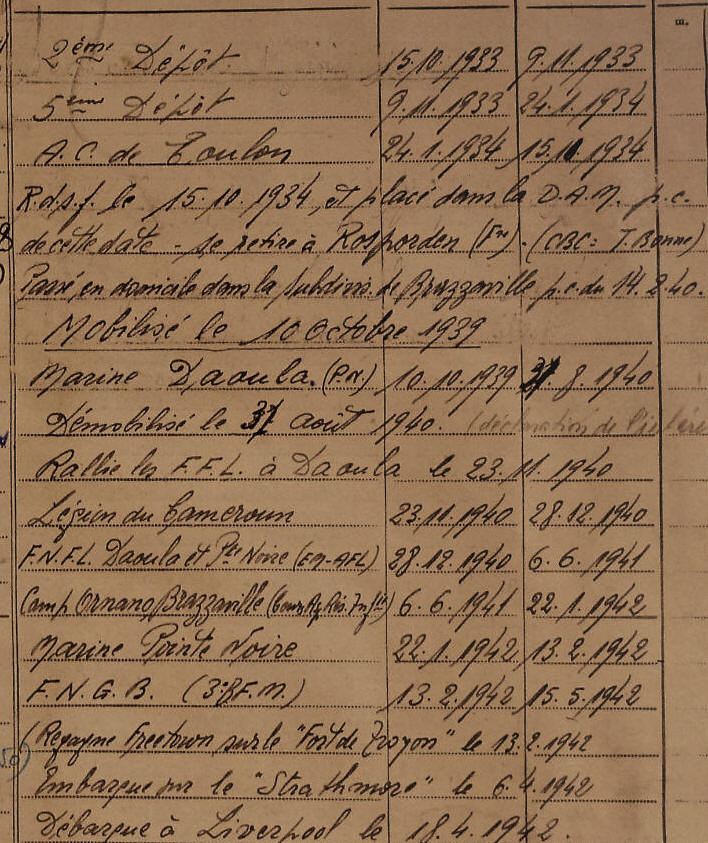 2ème Dépôt 15.10.1933 9.11.1933
5ème Dépôt 9.11.1933 24.1.1934
A.C. de Toulon 24.1.1934 15.10.1934
R.d.s.f. le 15.10.1934, et placé dans la D.A.M. p.c.
de cette date - se retire à Rosporden (Fre). (CBC= T. Bonne)
Passé en domicile dans la subdivis. de Brazzaville p.c. du 14.2.40.
Mobilisé le 10 Octobre 1939
Marine Daoula. (P.N.) 10.10.1939 31.8.1940
Démobilisé le 31 août 1940. (déclaration de l'intéressé
Rallie les F.F.L. à Daoula le 23.11.1940
Légion du Cameroun 23.11.1940 28.12.1940
F.N.F.L. Daoula et Pte Noire (EM-AFL) 28.12.1940 6.6.1941
Camp Ornano Brazzaville 6.6.1941 22.1.1942
Marine Pointe Noire 22.1.1942 13.2.1942
F.N.G.B. (3°BF.M.) 13.2.1942 15.5.1942
(Regagne Freetown sur le "Fort de Troyon" le 13.2.1942
Embarque sur le "Strathmore" le 6.4.1942
Débarque à Liverpool le 18.4.1942.